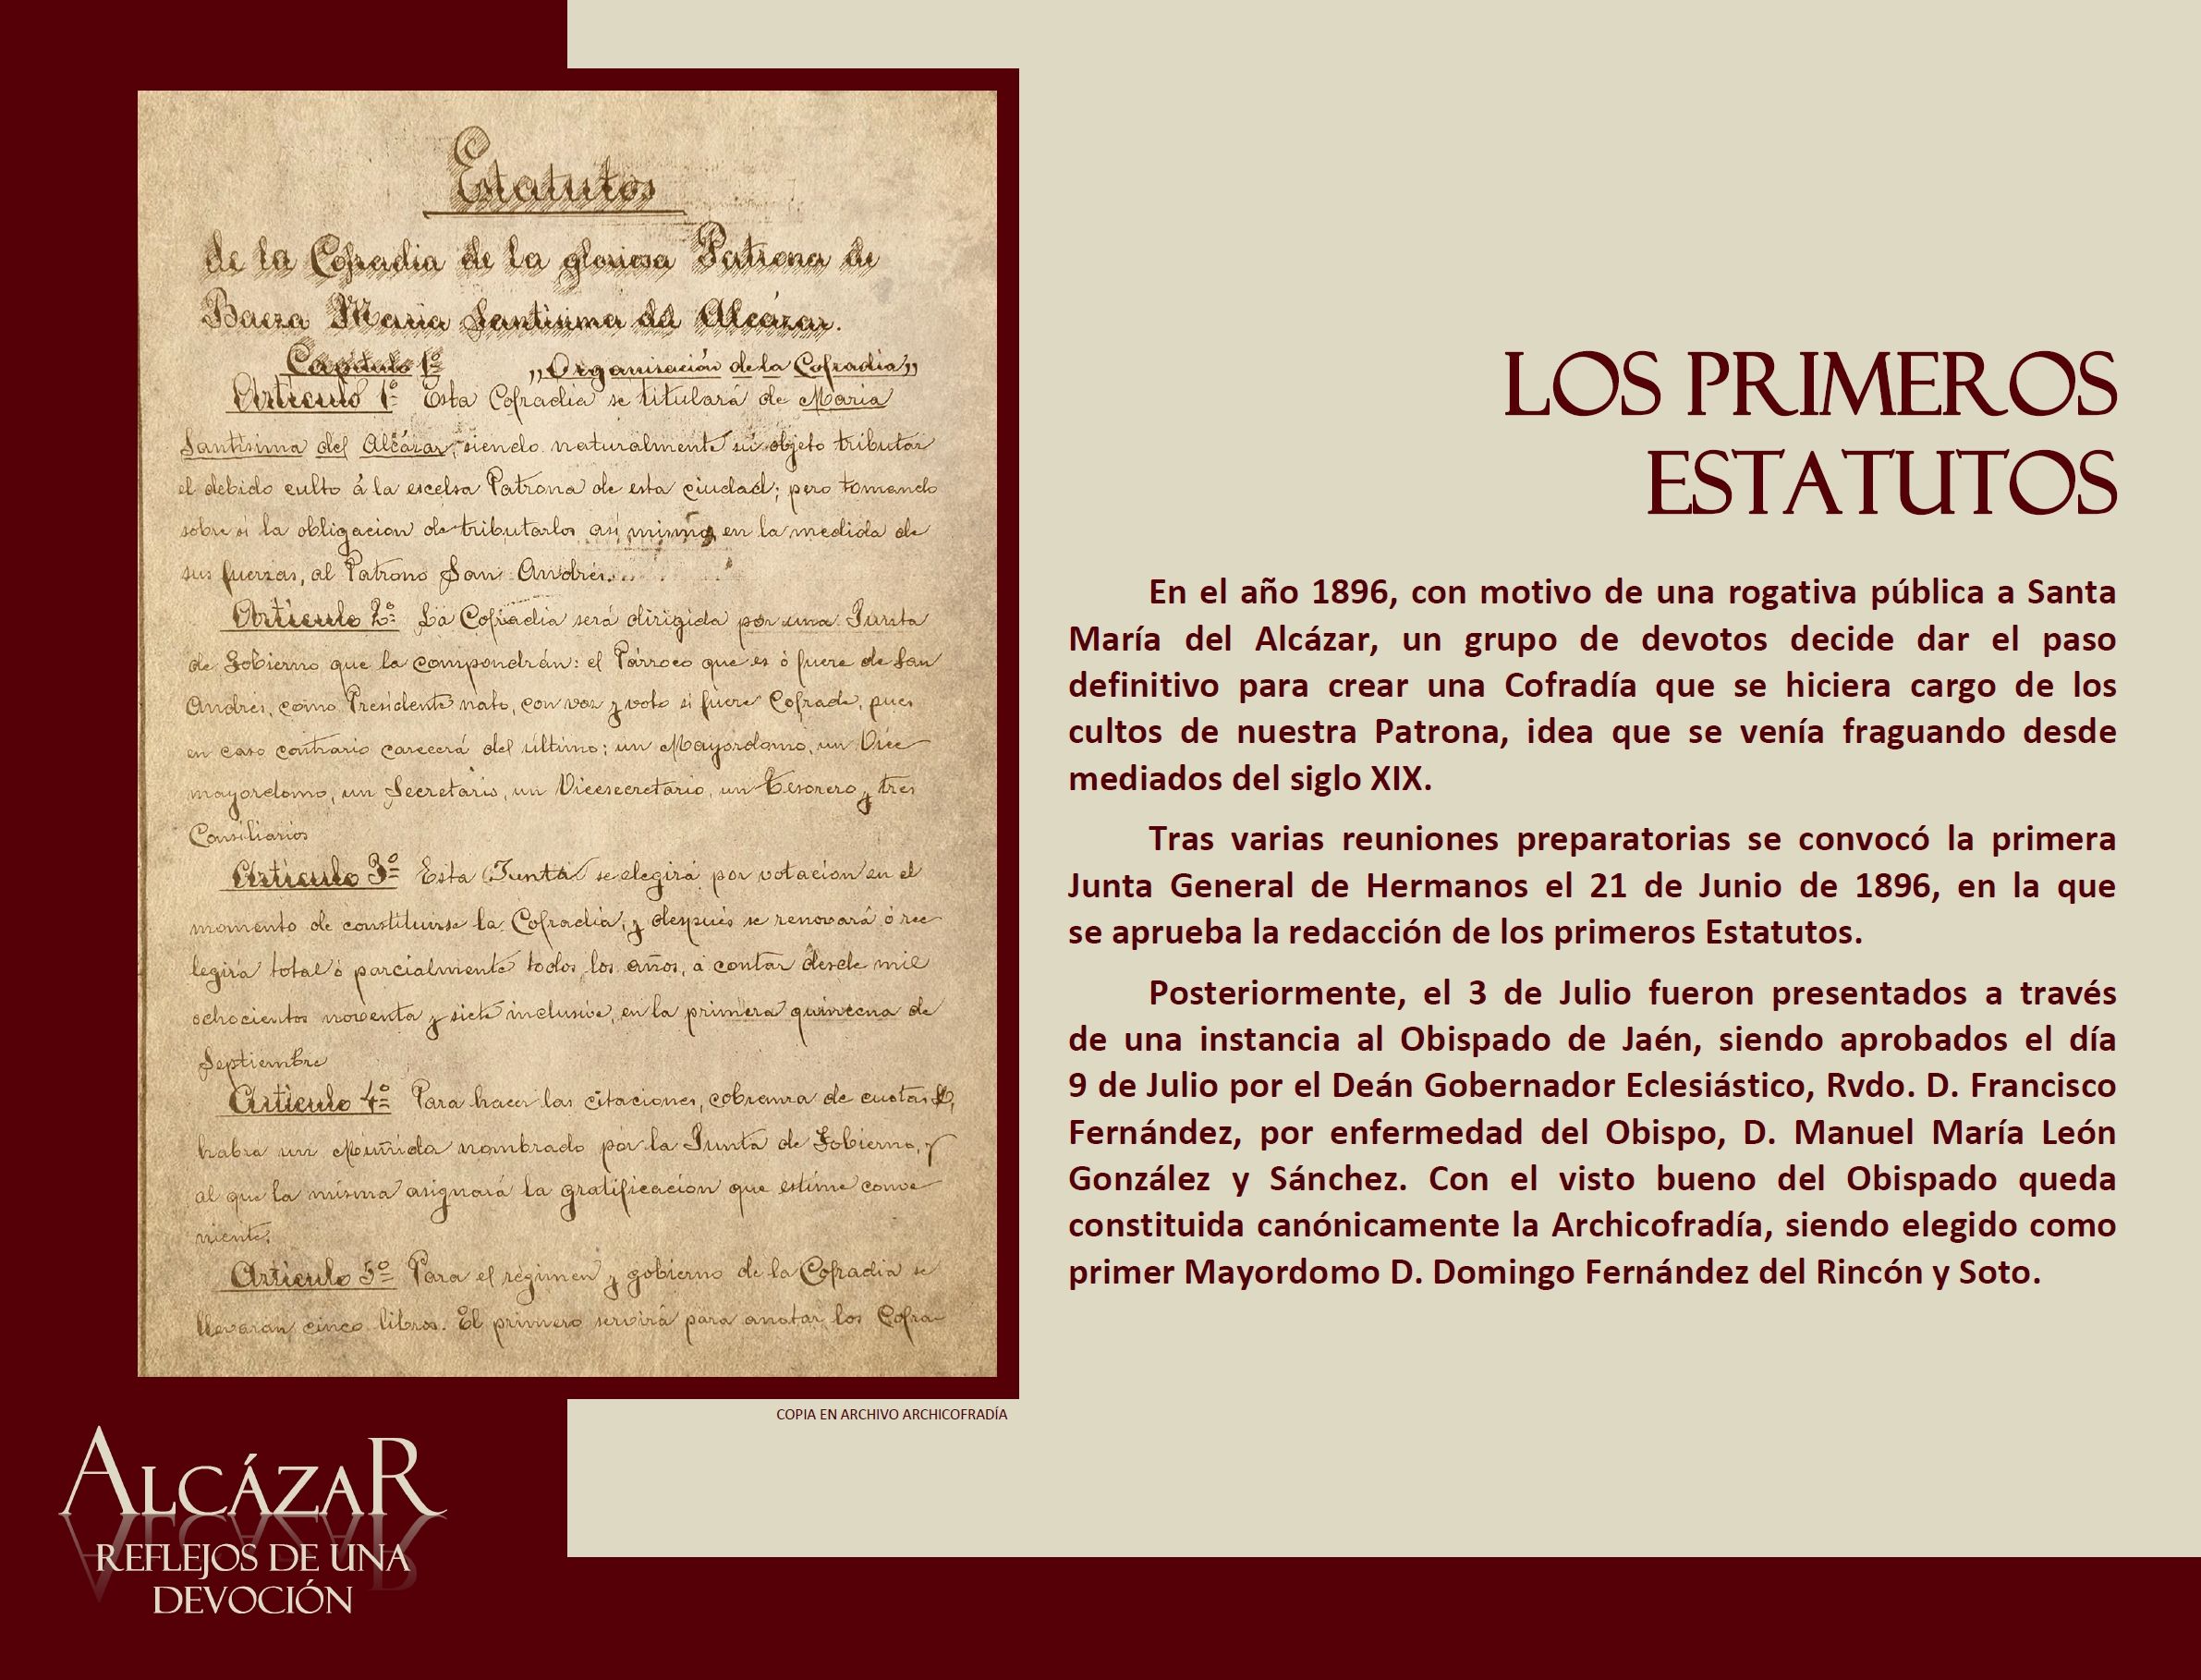 Estatutos
de la Cofradia de la gloriosa Patrona de
Baeza Maria Santisima del Alcázar.
Capítulo 1º „Organización de la Cofradía„
Artículo 1º Esta Cofradía se titulará de Maria
Santísima del Alcázar, siendo naturalmente su objeto tributar
el debido culto á la escelsa Patrona de esta ciudad; pero tomando
sobre sí la obligacion de tributarlos así mismo, en la medida de
sus fuerzas, al Patrono San Andrés.
Artículo 2º La Cofradia será dirigida por una Junta
de Gobierno que la compondrán: el Párroco que es ó fuere de San
Andrés, como Presidente nato, con voz y voto si fuere Cofrade, pues
en caso contrario carecerá del último; un Mayordomo, un Vice
mayordomo, un Secretario, un Vicesecretario, un Tesorero y tres
Consiliarios
Artículo 3º Esta Junta se elegirá por votación en el
momento de constituirse la Cofradía, y después se renovará ó ree
legirá total ó parcialmente todos los años, á contar desde mil
ochocientos noventa y siete inclusive, en la primera quincena de
Septiembre
Artículo 4º Para hacer las citaciones, cobranza de cuotas &,
habrá un Muñidor nombrado por la Junta de Gobierno, y
al que la misma asignará la gratificación que estime conve
niente.
Artículo 5º Para el régimen y gobierno de la Cofradia se
llevarán cinco libros. El primero servirá para anotar los Cofra
COPIA EN ARCHIVO ARCHICOFRADÍA
LOS PRIMEROS
ESTATUTOS
En el año 1896, con motivo de una rogativa pública a Santa
María del Alcázar, un grupo de devotos decide dar el paso
definitivo para crear una Cofradía que se hiciera cargo de los
cultos de nuestra Patrona, idea que se venía fraguando desde
mediados del siglo XIX.
Tras varias reuniones preparatorias se convocó la primera
Junta General de Hermanos el 21 de Junio de 1896, en la que
se aprueba la redacción de los primeros Estatutos.
Posteriormente, el 3 de Julio fueron presentados a través
de una instancia al Obispado de Jaén, siendo aprobados el día
9 de Julio por el Deán Gobernador Eclesiástico, Rvdo. D. Francisco
Fernández, por enfermedad del Obispo, D. Manuel María León
González y Sánchez. Con el visto bueno del Obispado queda
constituida canónicamente la Archicofradía, siendo elegido como
primer Mayordomo D. Domingo Fernández del Rincón y Soto.
ALCÁZAR
REFLEJOS DE UNA
DEVOCIÓN